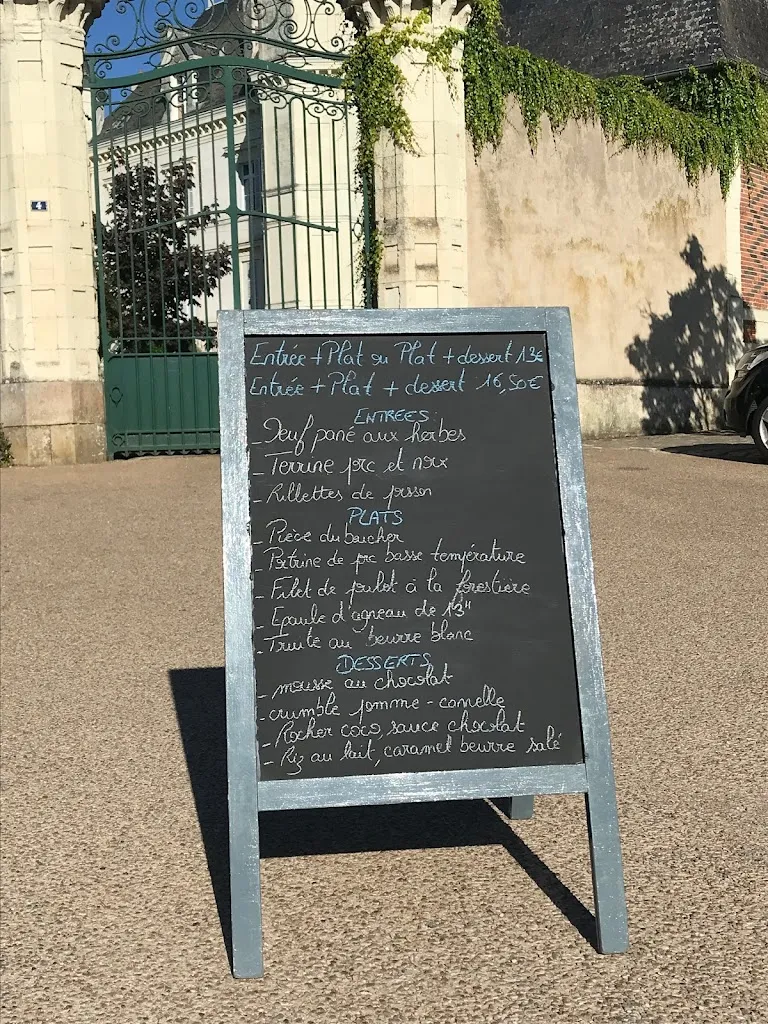 4
Entrée + Plat ou Plat + dessert 13€
Entrée + Plat + dessert 16,50€
ENTREES
- Oeuf pané aux herbes
- Terrine porc et noix
- Rillettes de poisson
PLATS
- Pièce du boucher
- Poitrine de porc basse température
- Filet de poulet à la forestière
- Epaule d'agneau de 13"
- Truite au beurre blanc
DESSERTS
- mousse au chocolat
- crumble pomme - cannelle
- Rocher coco, sauce chocolat
- Riz au lait, caramel beurre salé